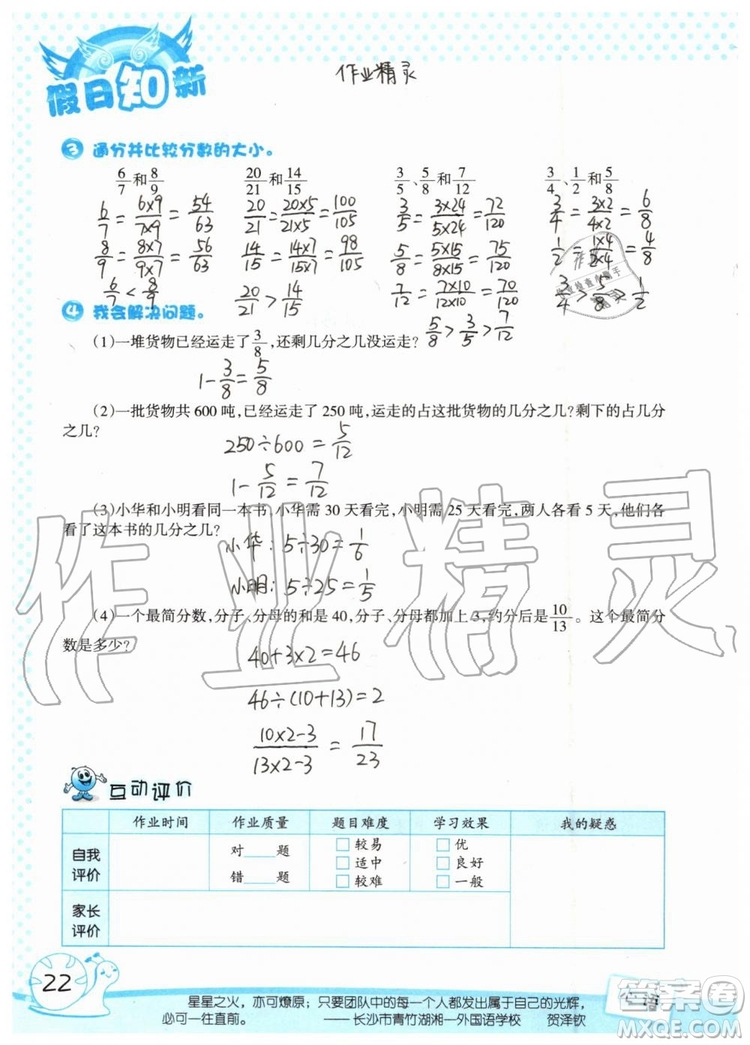 假日知新
作业精灵
3 通分并比较分数的大小。
6/7和8/9  20/21和14/15  3/5、5/8和7/12  3/4、1/2和5/8
6/7=6×9/7×9=54/63  20/21=20×5/21×5=100/105  3/5=3×24/5×24=72/120  3/4=3×2/4×2=6/8
8/9=8×7/9×7=56/63  14/15=14×7/15×7=98/105  5/8=5×15/8×15=75/120  1/2=1×4/2×4=4/8
6/7<8/9  20/21>14/15  7/12=7×10/12×10=70/120  3/4>5/8>1/2
5/8>3/5>7/12
4 我会解决问题。
(1)一堆货物已经运走了3/8,还剩几分之几没运走?
1-3/8=5/8
(2)一批货物共 600 吨,已经运走了 250 吨,运走的占这批货物的几分之几?剩下的占几分
之几?
250÷600=5/12
1-5/12=7/12
(3)小华和小明看同一本书,小华需 30 天看完,小明需 25 天看完,两人各看 5 天,他们各
看了这本书的几分之几?
小华:5÷30=1/6
小明:5÷25=1/5
(4)一个最简分数,分子、分母的和是 40,分子、分母都加上 3,约分后是10/13。这个最简分
数是多少?
40+3×2=46
46÷(10+13)=2
10×2-3/13×2-3=17/23
作业精灵
互动评价
作业时间 作业质量 题目难度 学习效果 我的疑惑
自我评价 对____题 错____题 □较易 □适中 □较难 □优 □良好 □一般
家长评价
22
星星之火,亦可燎原;只要团队中的每一个人都发出属于自己的光辉,
必可一往直前。 ——长沙市青竹湖湘一外国语学校 贺泽钦
答案圈
MXQE.COM